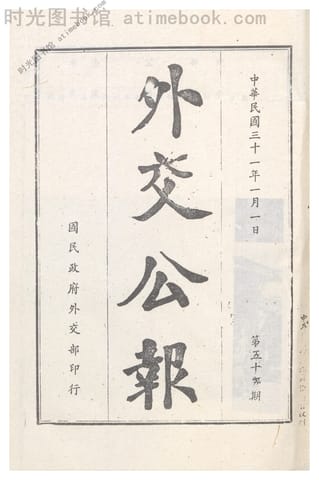 时光图书馆 atimebook.com
时光图书馆 atimebook.com
中華民國三十一年一月一日
外交公報
第五十九期
國民政府外交部印行